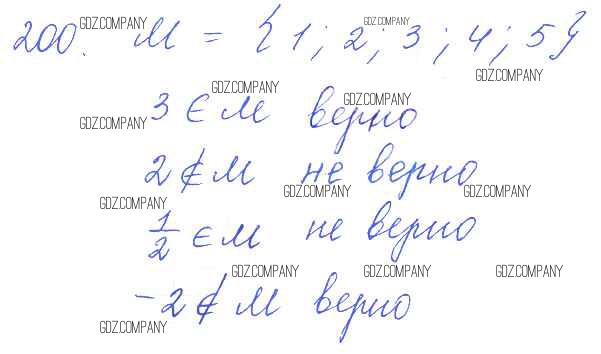 200. M = {1; 2; 3; 4; 5}
3 ∈ M верно
2 ∉ M не верно
1/2 ∈ M не верно
-2 ∉ M верно
GDZ.COMPANY
GDZ.COMPANY
GDZ.COMPANY
GDZ.COMPANY
GDZ.COMPANY
GDZ.COMPANY
GDZ.COMPANY
GDZ.COMPANY
GDZ.COMPANY
GDZ.COMPANY
GDZ.COMPANY
GDZ.COMPANY
GDZ.COMPANY